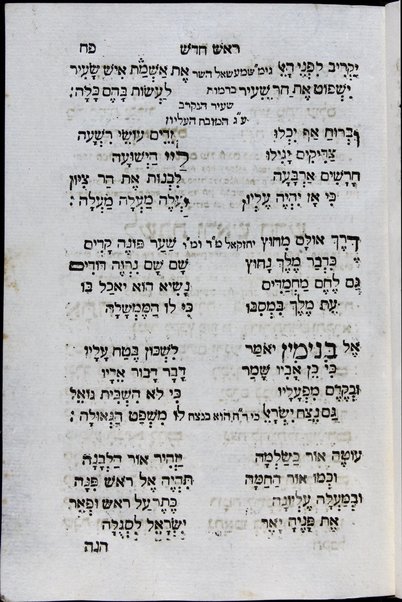 ראש חדש פח
יַקְרִיב לִפְנֵי הָצֵ גימ״ שמעשאל השר אֶת אַשְׁמַת אִישׁ שָׂעִיר
יִשְׁפּוֹט אֶת הַר שֵׂעִיר כרמות לַעֲשׂוֹת בָּהֶם כָּלָה:
שעיר הנקרב
ע״ג המזבח העליון
וּבְרוּחַ אַף יִכְלוּ זֵדִים עוֹשֵׂי רִשְׁעָה
צַדִּיקִים יָגִילוּ לַיְיָ הַיְשׁוּעָה
חָרָשִׁים אַרְבָּעָה לִבְנוֹת אֶת הַר צִיּוֹן
כִּי אָז יִהְיֶה עֶלְיוֹן יַעֲלֶה מַעְלָה מָעְלָה:
דֶּרֶךְ אוּלָם מִחוּץ יחזקאל מ״ד ומ״ו שַׁעַר פּוֹנֶה קָדִים
כִּדְבַר מֶלֶךְ נָחוּץ שָׁם שָׁם נִהְיֶה דוֹדִים
גַּם לֶחֶם מַחֲמַדִּים נָשִׂיא הוּא יֹאכַל בּוֹ
עֵת מֶלֶךְ בִּמְסִבּוֹ כִּי לוֹ הַמֶּמְשָׁלָה
אֶל בִּנְיָמִין יֹאמַר לִשְׁכּוֹן בֶּטַח עָלָיו
כִּי כֵן אָבִיו שָׁמַר דְּבַר דִּבּוּר אֵדָיו
וּבְקֶדֶם מִפְעָלָיו כִּי לֹא הִשְׁבִּית גּוֹאֵל
גַּם נֵצַח יִשְׂרָאֵל כי ר״ת הוא בנצח לוֹ מִשְׁפַּט הַגְּאוּלָה:
עוֹטֶה אוֹר כַּשַּׂלְמָה יַזְהִיר אוֹר הַלְּבָנָה
וּכְמוֹ אוֹר הַחַמָּה תִּהְיֶה אֶל רֹאשׁ פִּנָּה
וּבְמַעֲלָה עֶלְיוֹנָה כֶּתֶר עַל רֹאשׁ וּפְאֵר
אֶת פָּנֶיהָ יָאֵר יִשְׂרָאֵל לִסְגֻלָּה
הנה